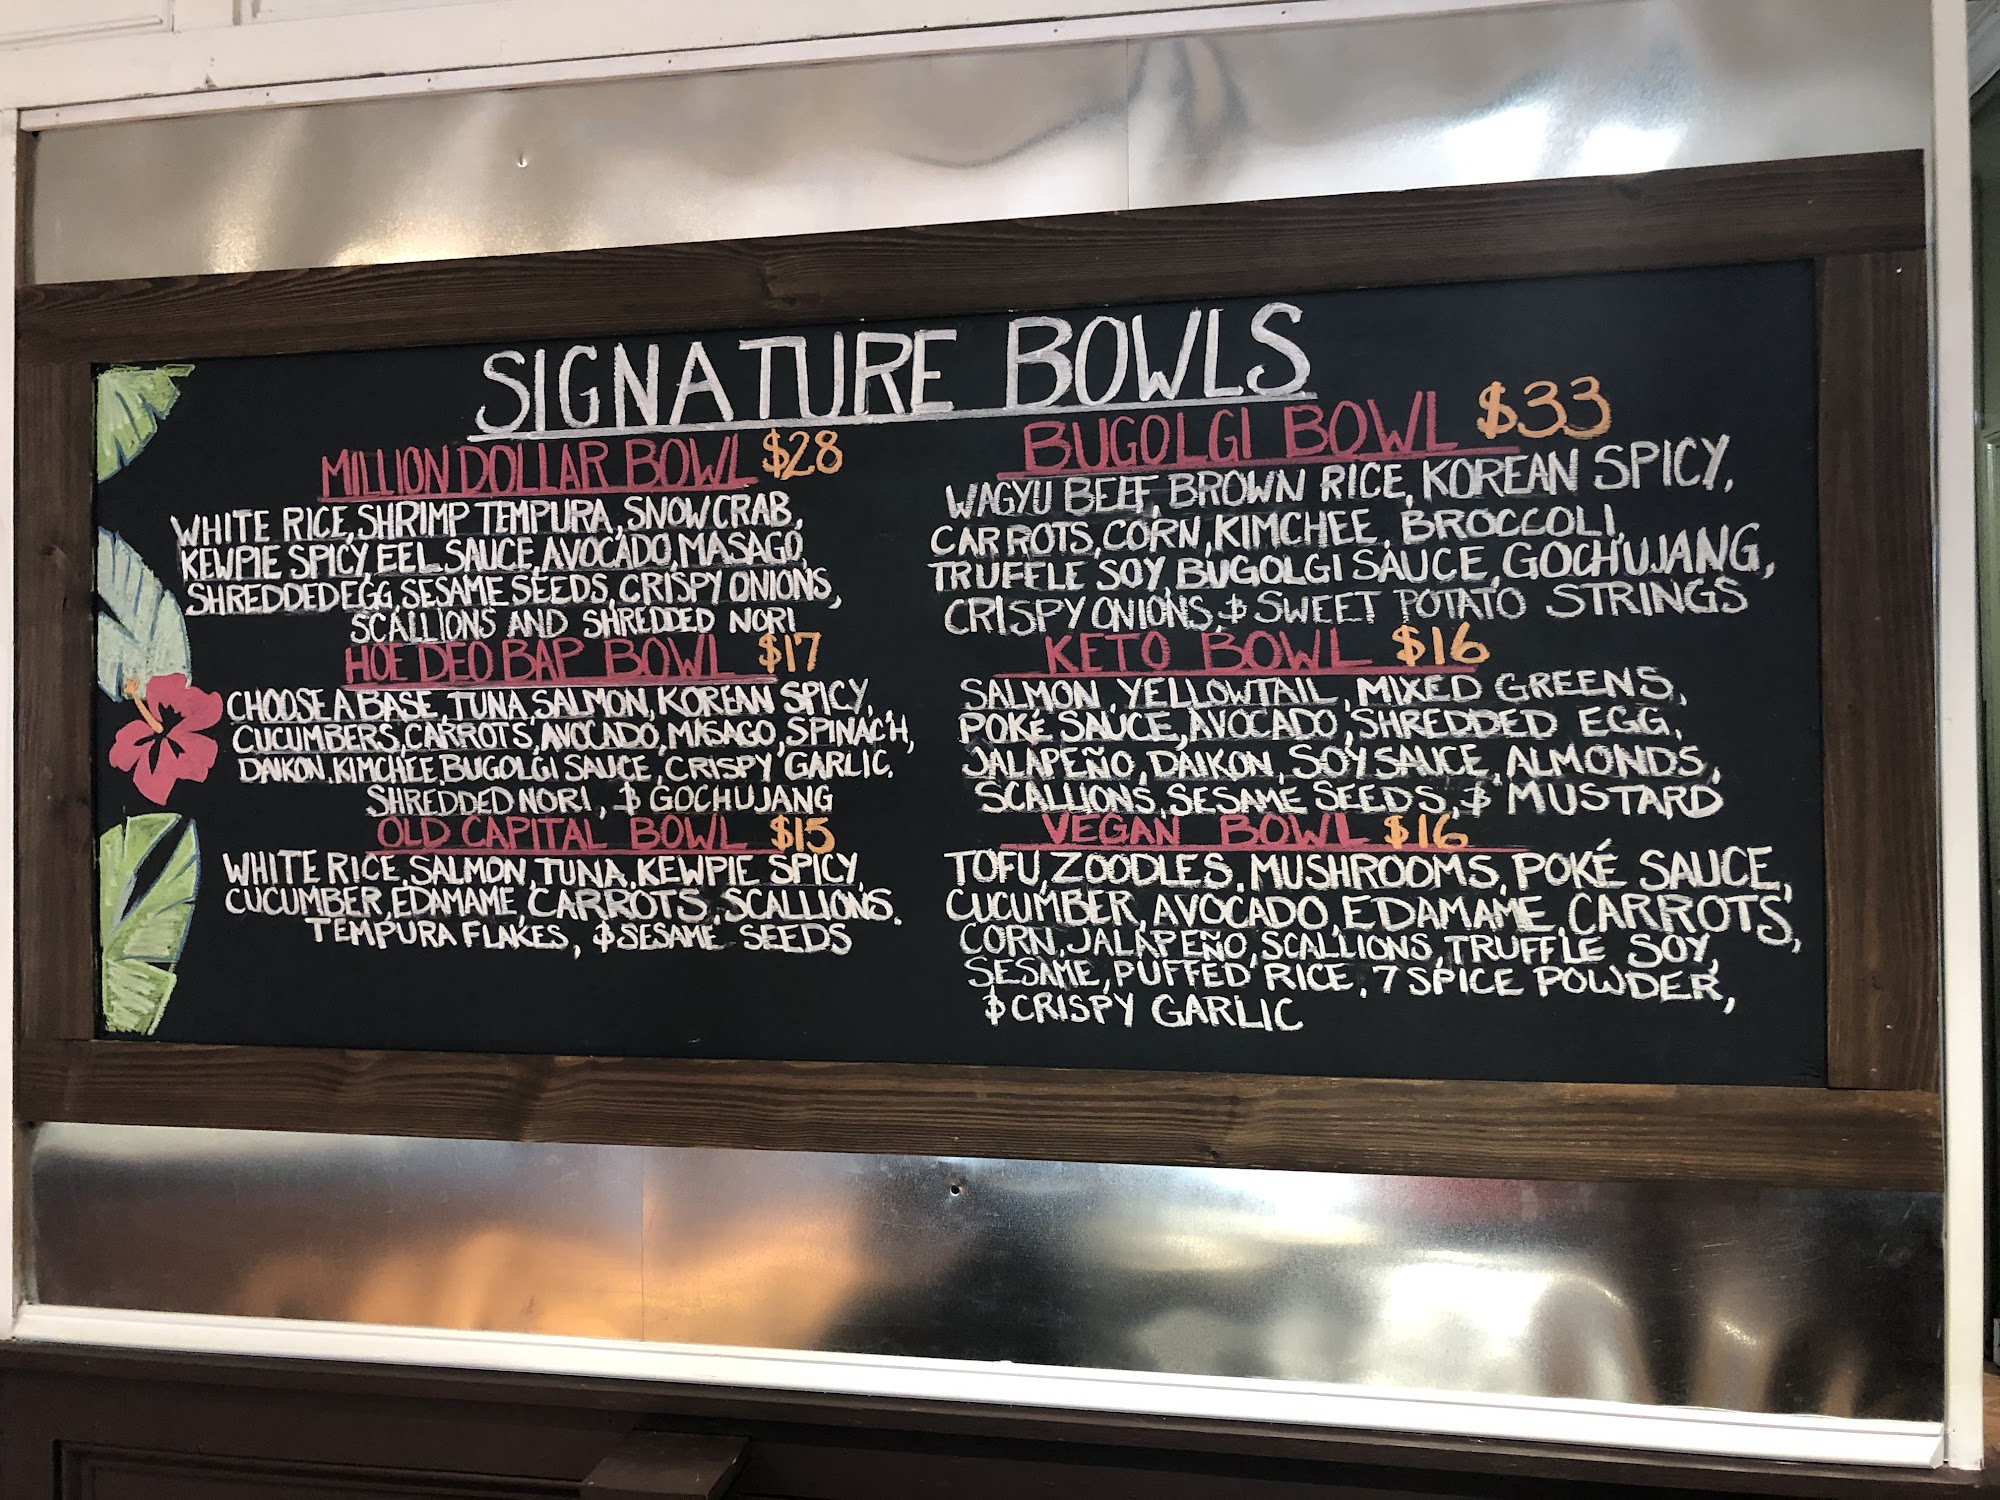 SIGNATURE BOWLS
MILLION DOLLAR BOWL $28
WHITE RICE, SHRIMP TEMPURA, SNOW CRAB,
KEWPIE SPICY, EEL SAUCE, AVOCADO, MASAGO,
SHREDDED EGG, SESAME SEEDS, CRISPY ONIONS,
SCALLIONS AND SHREDDED NORI
HOE DEO BAP BOWL $17
CHOOSE A BASE, TUNA, SALMON, KOREAN SPICY,
CUCUMBERS, CARROTS, AVOCADO, MASAGO, SPINACH,
DAIKON, KIMCHEE, BUGOLGI SAUCE, CRISPY GARLIC,
SHREDDED NORI, & GOCHUJANG
OLD CAPITAL BOWL $15
WHITE RICE, SALMON, TUNA, KEWPIE SPICY,
CUCUMBER, EDAMAME, CARROTS, SCALLIONS,
TEMPURA FLAKES, & SESAME SEEDS
BUGOLGI BOWL $33
WAGYU BEEF, BROWN RICE, KOREAN SPICY,
CARROTS, CORN, KIMCHEE, BROCCOLI,
TRUFFLE SOY, BUGOLGI SAUCE, GOCHUJANG,
CRISPY ONIONS, & SWEET POTATO STRINGS
KETO BOWL $16
SALMON, YELLOWTAIL, MIXED GREENS,
POKÉ SAUCE, AVOCADO, SHREDDED EGG,
JALAPEÑO, DAIKON, SOY SAUCE, ALMONDS,
SCALLIONS, SESAME SEEDS, & MUSTARD
VEGAN BOWL $16
TOFU, ZOODLES, MUSHROOMS, POKÉ SAUCE,
CUCUMBER, AVOCADO, EDAMAME, CARROTS,
CORN, JALAPEÑO, SCALLIONS, TRUFFLE SOY,
SESAME, PUFFED RICE, 7 SPICE POWDER,
& CRISPY GARLIC